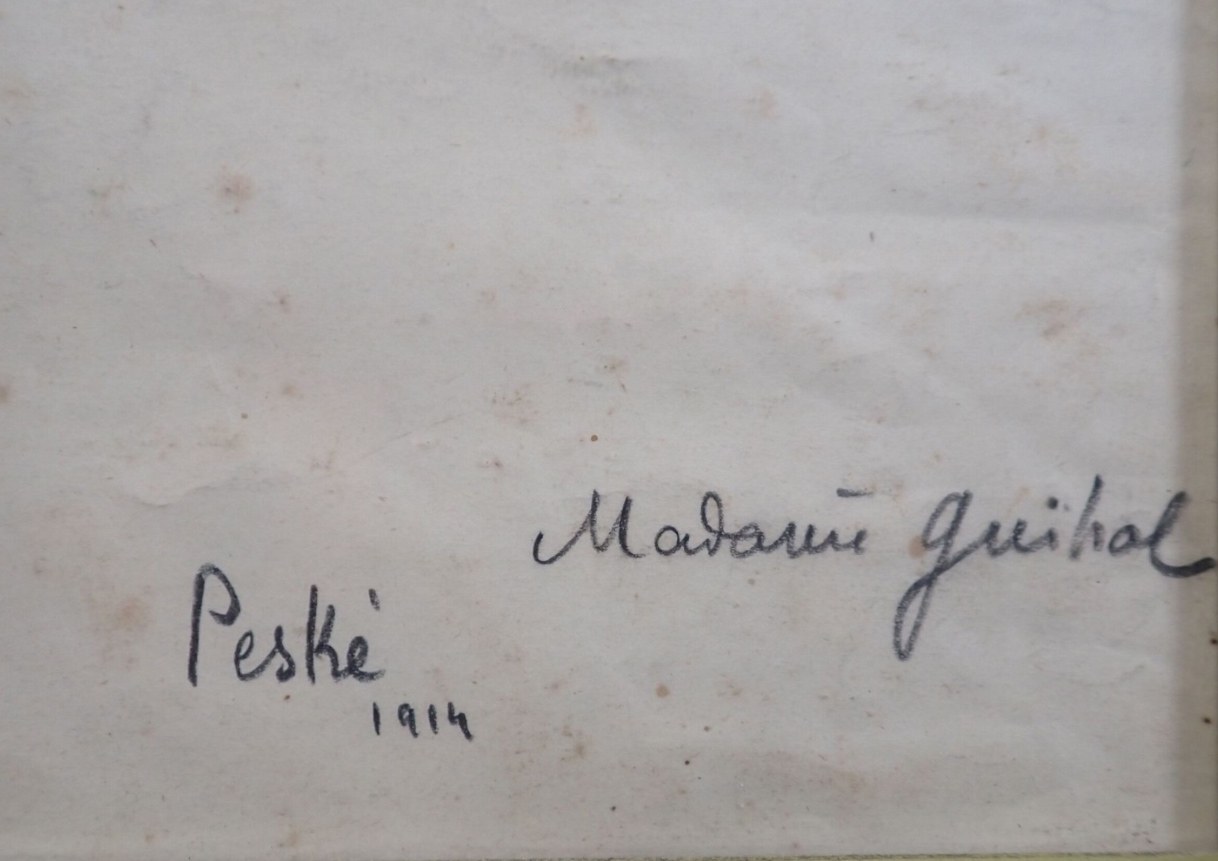 Madame Guihal
Peské
1914